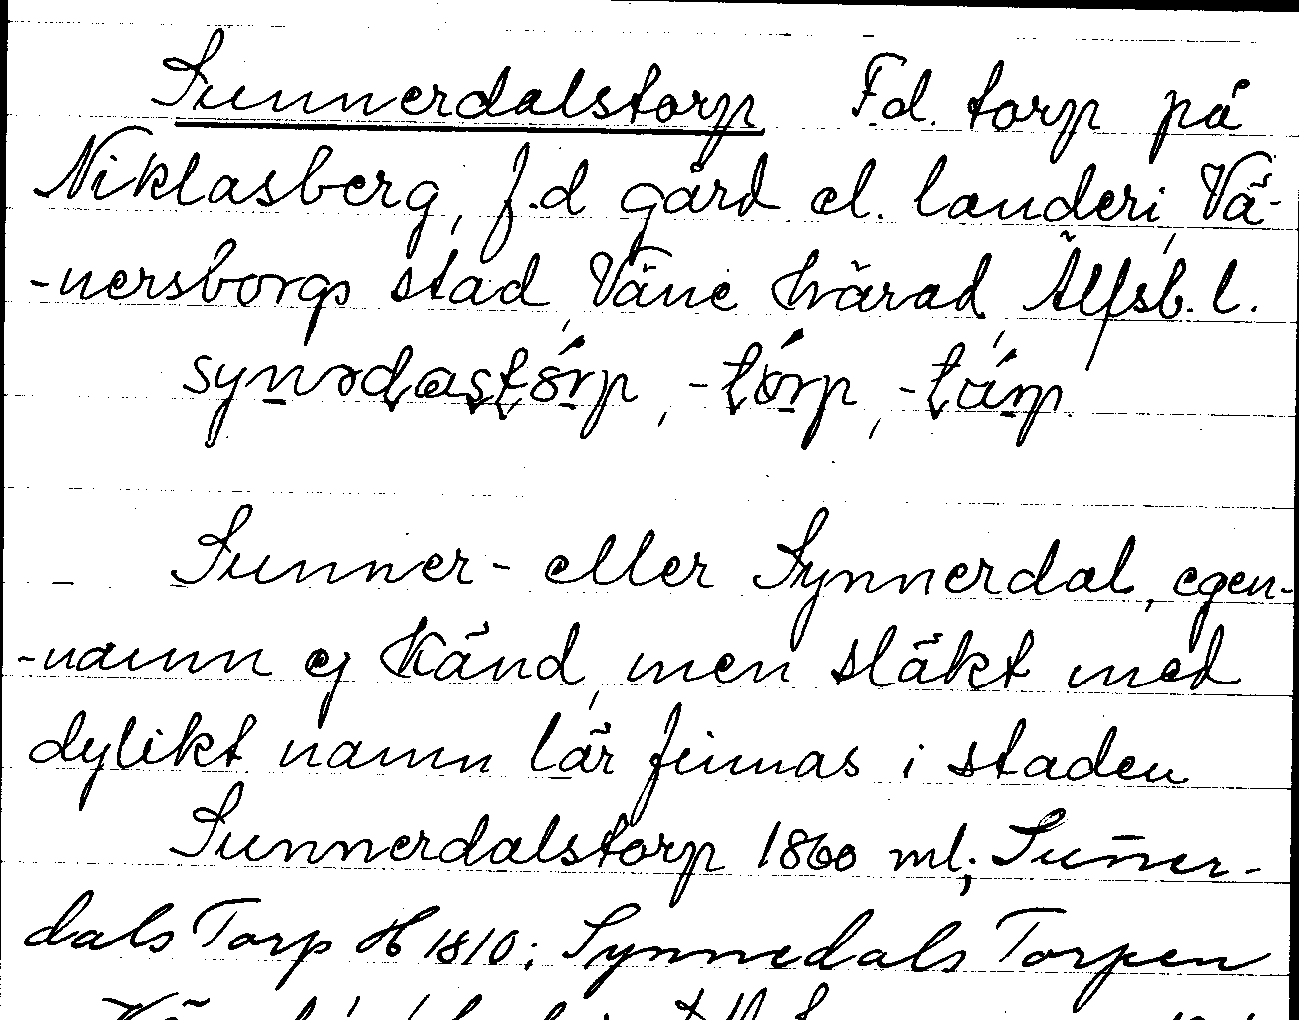 Sunnerdalstorp F.d. torp på
Niklasberg, f.d gård el. landeri, Vä-
-nersborgs stad, Väne härad, Älfsb. l.
synərdastórp, -tórp, -tárp.
Sunner- eller Synnerdal, egen-
-namn ej känd, men släkt med
dylikt namn lär finnas i staden
Sunnerdalstorp 1860 ml; Sun̄er-
dals Torp H 1810; Synnedals Torpen